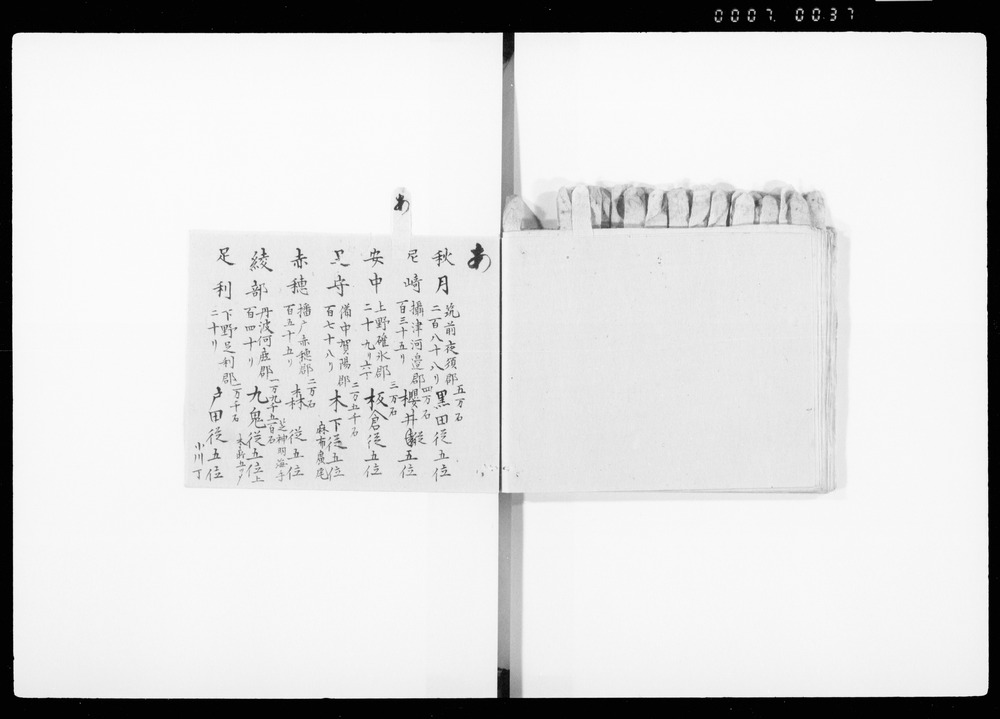 0007 0037
あ
あ
秋月 筑前夜須郡 五万石
二百八十八り 黒田従五位
尼崎 攝津河邉郡 四万石
百三十五り 櫻井従五位
安中 上野碓氷郡 三万石
二十九り六丁 板倉従五位
足守 備中賀陽郡 二万五千石
百七十八り 木下従五位 麻布廣尾
赤穂 播广赤穂郡 二万石
百五十五り 森従五位 芝神明海手
綾部 丹波何鹿郡 一万九千五百石
百四十り 九鬼従五位上
足利 下野足利郡 一万千石
二十り 戸田従五位 小川丁